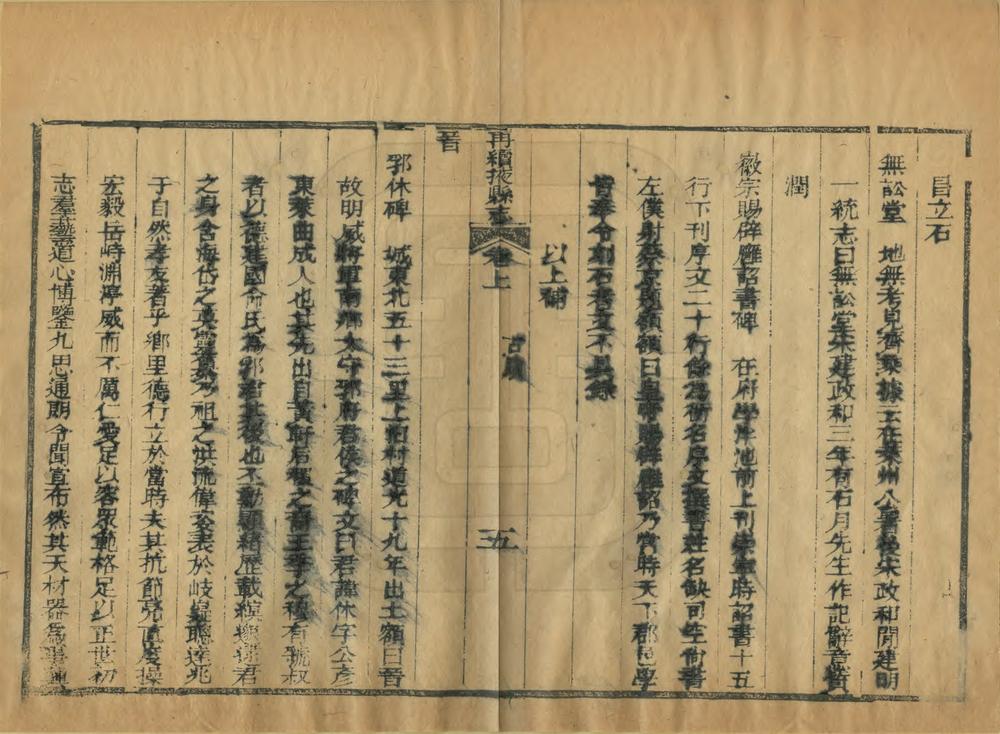 昌立石
無訟堂　地無考見齊乘據云在萊州公署後宋政和間建明
一統志曰無訟堂宋建政和三年有石月先生作記辭意質
潤
徽宗賜辟廱詔書碑　在府學泮池前上刊崇寧時詔書十五
行下刊序文二十行餘為銜名序文撰書姓名缺可生尚書
左僕射蔡京題額額曰皇帝賜辟廱詔乃當時天下郡邑學
皆奉令刻石者文不具錄
以上補
再續掖縣志
卷上
古蹟
五
晋
郛休碑　城東北五十三里上栢村道光十九年出土額曰晋
故明威將軍南鄉太守郛府君侯之碑文曰君諱休字公彥
東萊曲成人也其先出自黃軒后稷之裔王季之穆有虢叔
者以德建國命氏為郛君其後也不勳顯緒歷載繽
之身含海岱之真靈纂乃祖之洪流偉姿表於岐嶷聰達兆
于自然孝友著乎鄉里德行立於當時夫其抗節亮直度操
宏毅岳峙淵渟威而不厲仁愛足以容眾範格足以正世初
志羣藝道心博鑒九思通朗令聞宣布然其天材器為